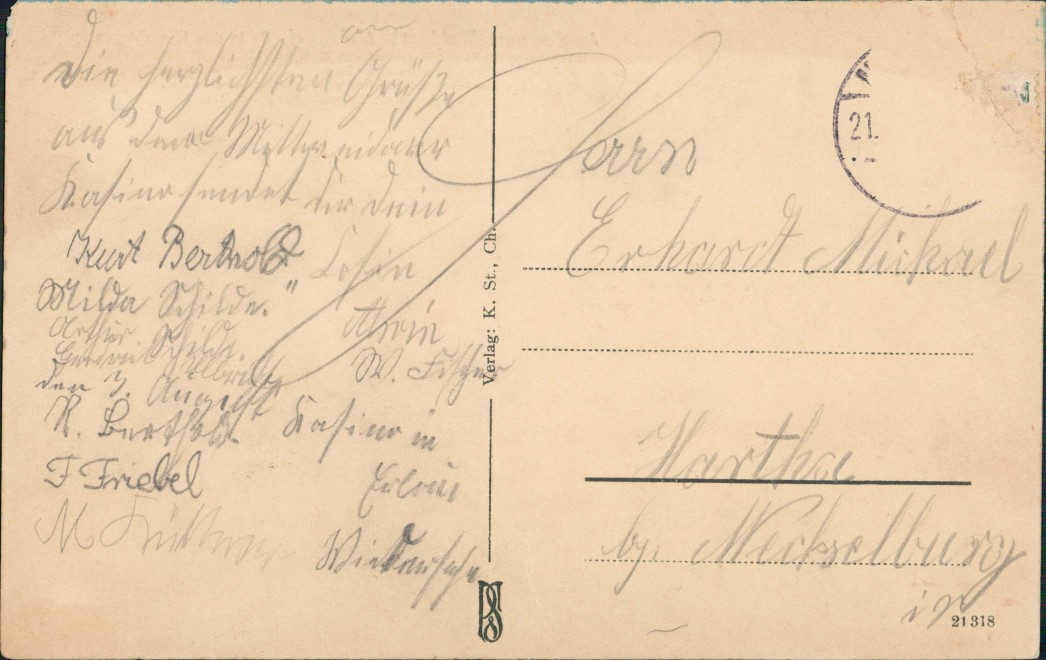 Die herzlichsten Grüße
aus dem Mittweidaer
Kasino sendet Dir Dein
Kurt Berthold
Milda Schilde. "
Arthur
Schilde.
den 3. August
K. Berthold.
F Friebel
M
W. Fischer
Kasino in
Erlau
Wiedersehn
Verlag: K. St., Ch.
21.
Herrn
Erhardt Michael
Hartha
by. Mechelburg
in
21318